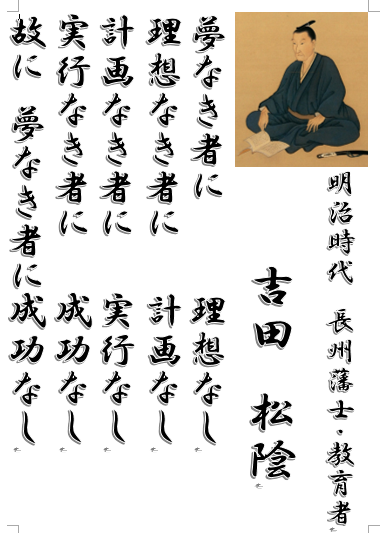 明治時代 長州藩士・教育者
吉田 松陰
夢なき者に 理想なし
理想なき者に 計画なし
計画なき者に 実行なし
実行なき者に 成功なし
故に 夢なき者に成功なし